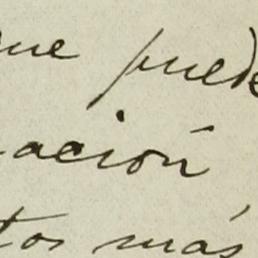 que puede
ación
tos más